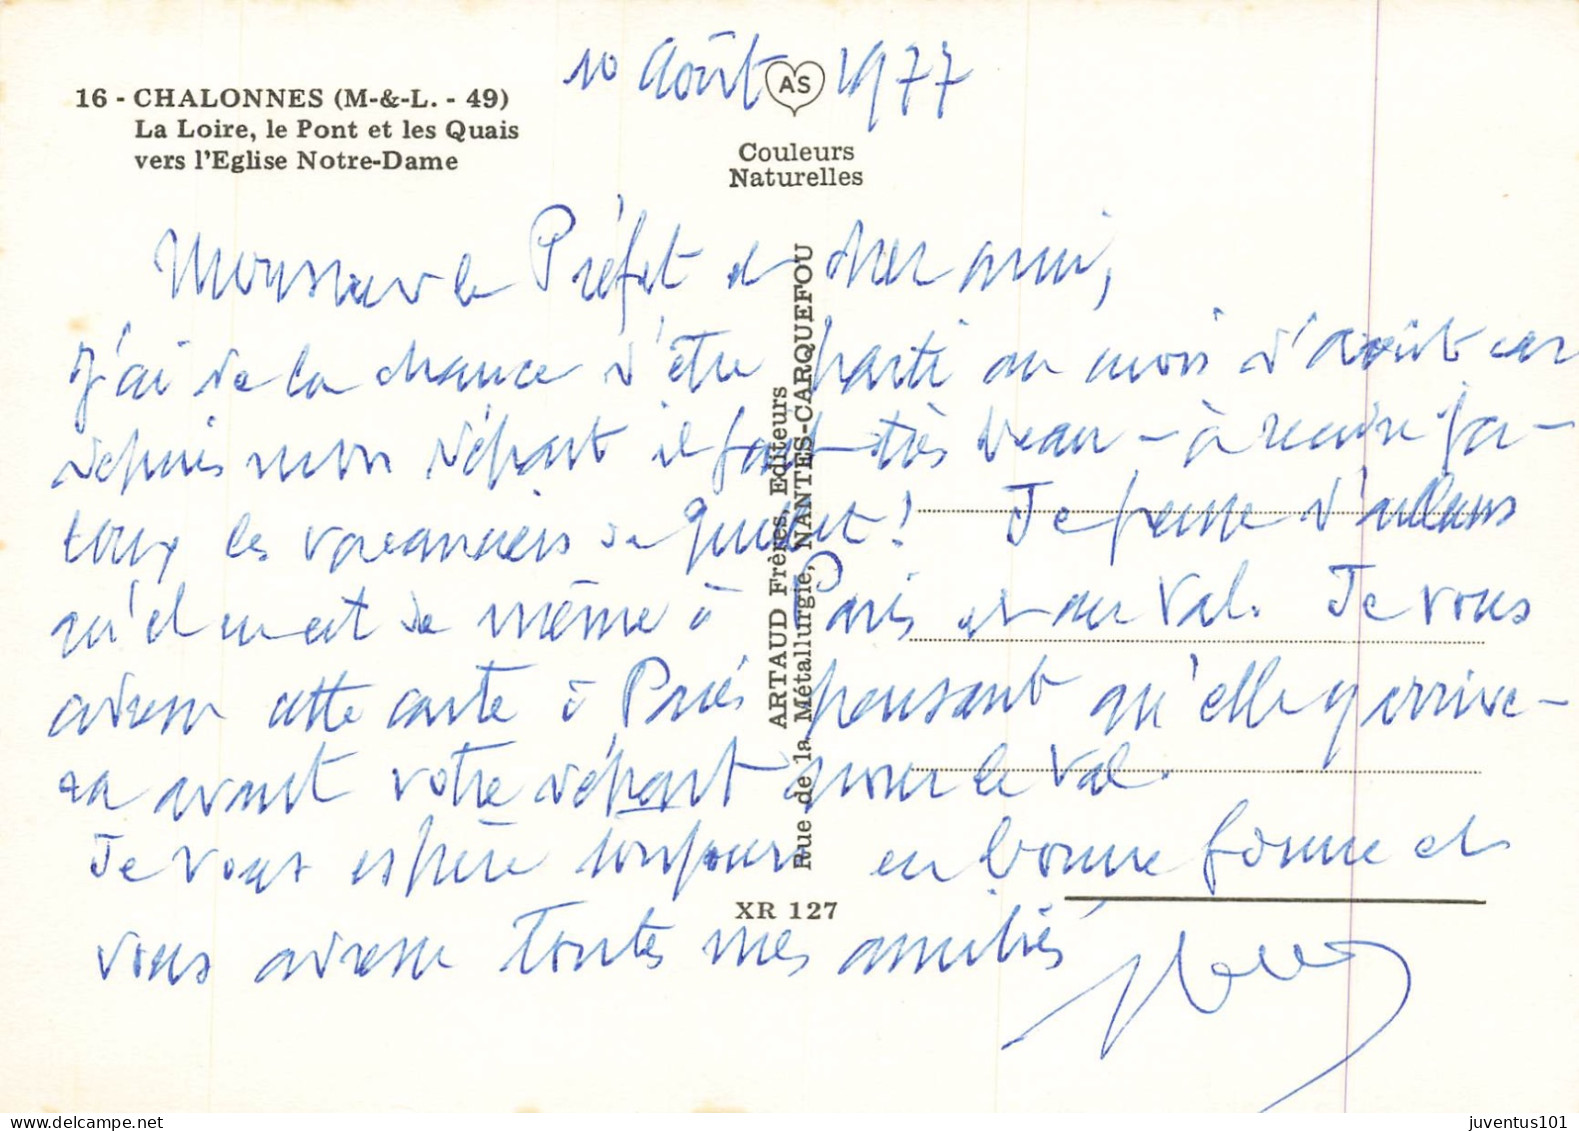 10 Août 1977
16 - CHALONNES (M-&-L. - 49)
La Loire, le Pont et les Quais
vers l'Eglise Notre-Dame
AS
Couleurs
Naturelles
Monsieur le Préfet et cher ami,
J'ai de la chance d'être parti au mois d'août car
depuis mon départ il fait très beau - à rendre ja-
loux les vacanciers de juillet ! Je pense d'ailleurs
qu'il en est de même à Paris et au Val. Je vous
adresse cette carte à Paris pensant qu'elle y arrive-
ra avant votre départ pour le Val.
Je vous espère toujours en bonne forme et
vous adresse toutes mes amitiés
ARTAUD Frères, Editeurs
Rue de la Métallurgie, NANTES-CARQUEFOU
XR 127
juventus101